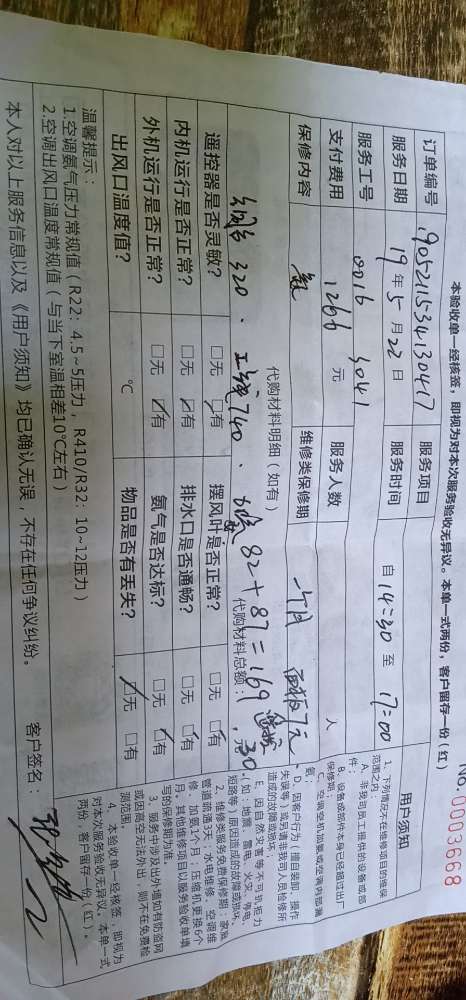 本验收单一经核签，即视为对本次服务验收无异议。本单一式两份，客户留存一份(红)
No. 0003668
订单编号 190521534130417 服务项目
服务日期 19 年 5 月 22 日 服务时间 自 14:30 至 17:00
服务工号 0016 3041
支付费用 1266 元 服务人数 人
保修内容 维修类保修期 一个月
代购材料明细(如有) 面板7元
320、 740、 82+87=169
代购材料总额： 元 30
遥控器是否灵敏？ □无 □有 摆风叶是否正常？ □无 □有
内机运行是否正常？ □无 □有 排水口是否通畅？ □无 □有
外机运行是否正常？ □无 □有 氨气是否达标？ □无 □有
出风口温度值？ ℃ 物品是否有丢失？ □无 □有
温馨提示：
1.空调氨气压力常规值（R22：4.5~5压力，R410/R32：10~12压力）
2.空调出风口温度常规值（与当下室温相差10℃左右）
本人对以上服务信息以及《用户须知》均已确认无误，不存在任何争议纠纷。 客户签名：
用户须知
1、下列情况不在维修项目的维保范围之内：
A、非我司员工提供的设备或部件；
B、设备或部件本身已经超过出厂保修期；
D、因客户行为（擅自装卸、操作失误等）或另请非我司人员检修所造成的故障或损坏；
E、因自然灾害等不可抗拒力（如：地震、雷电、火灾、等电、短路等）原因造成的故障或损坏。
2、维修类服务免费保修期：家庭管道疏通3天，水电维修、空调维修、加氨1个月；压缩机更换6个月。其他维修项目以服务验收单填写的保修期为准。
3、服务中涉及出外墙如有防盗网或因高空无法外出，则不在免费检测范围。
4、本验收单一经核签，即视为对本次服务验收无异议。本单一式两份，客户留存一份（红）。